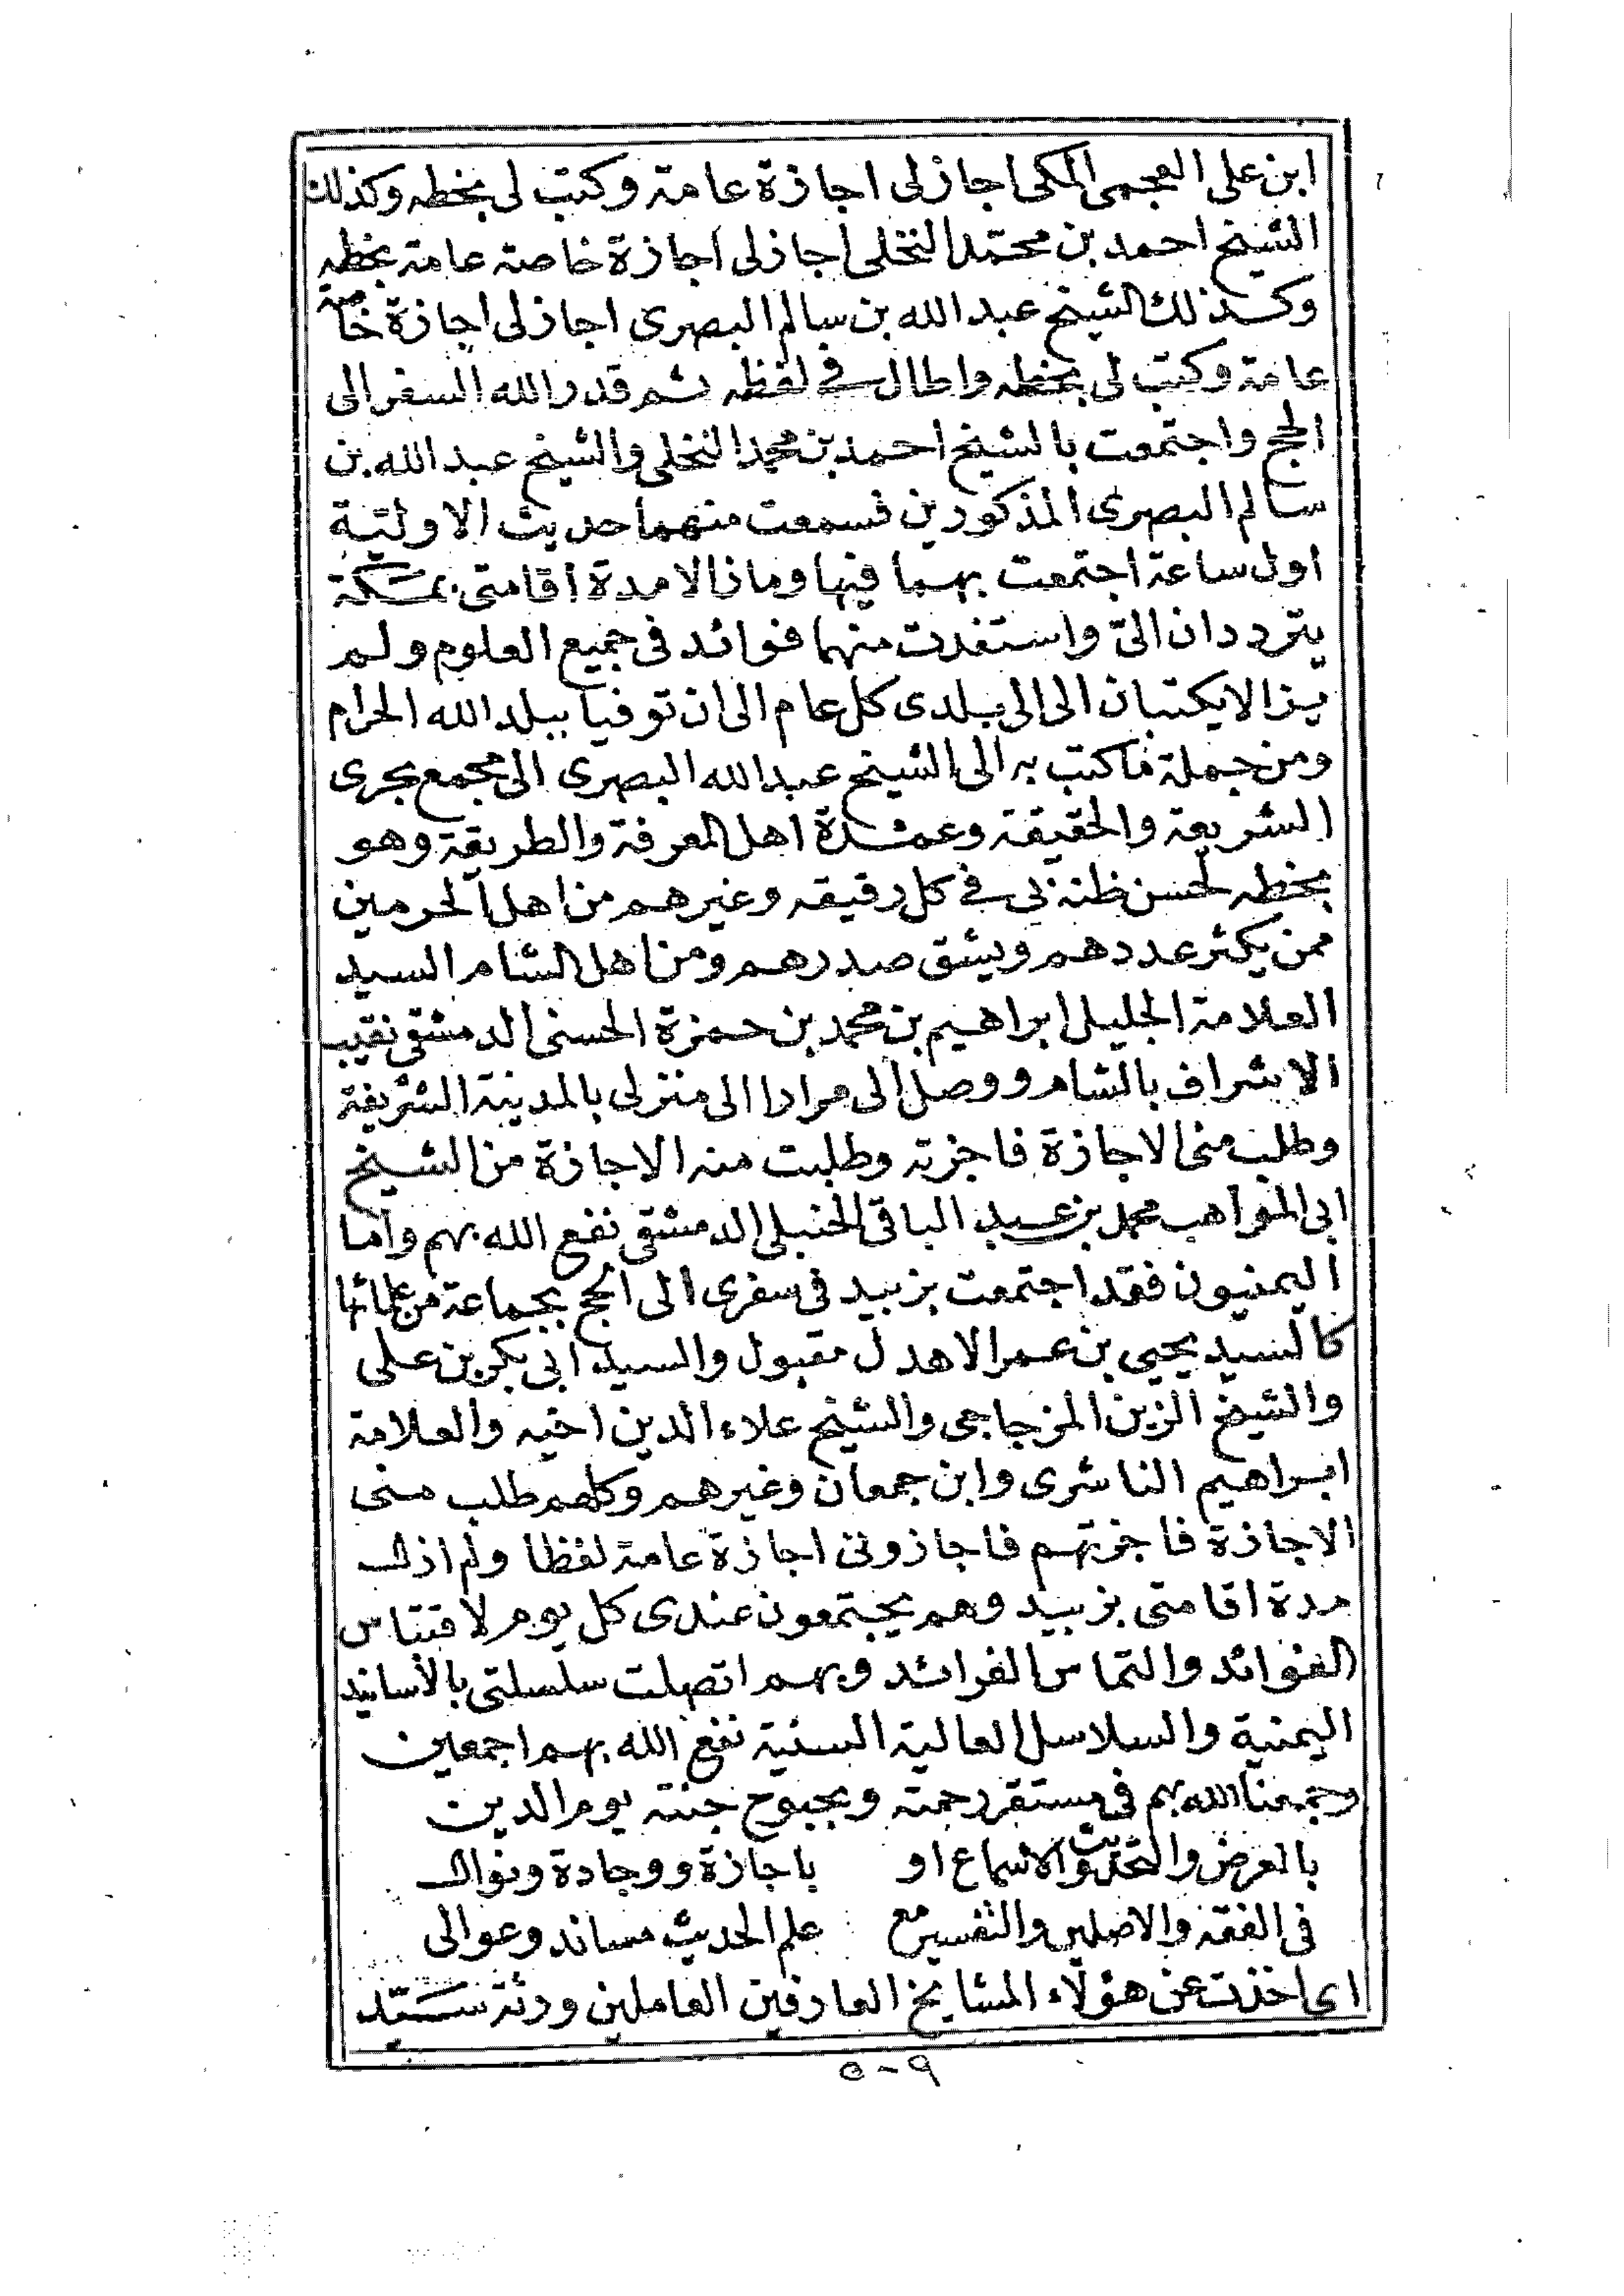 ابن على العجمى المكى اجاز لى اجازة عامة وكتب لى بخطه وكذلك
الشيخ احمد بن محمد النخلى اجاز لى اجازة خاصة عامة بخطه
وكذلك الشيخ عبد الله بن سالم البصرى اجاز لى اجازة خاصة
عامة وكتب لى بخطه واطال فى لفظه ثم قدر الله السفر الى
الحج واجتمعت بالشيخ احمد بن محمد النخلى والشيخ عبد الله بن
سالم البصرى المذكورين فسمعت منهما حديث الاولية
اول ساعة اجتمعت بهما فيها وما زالا مدة اقامتى بمكة
يترددان الىّ واستفدت منهما فوائد فى جميع العلوم ولم
يزالا يكتبان الى الى بلدى كل عام الى ان توفيا ببلد الله الحرام
ومن جملة ما كتب به الى الشيخ عبد الله البصرى الى مجمع بحرى
الشريعة والحقيقة وعمدة اهل المعرفة والطريقة وهو
بخطه لحسن ظنه بى فى كل رقيقه وغيرهم من اهل الحرمين
ممن يكثر عددهم ويشق صدرهم ومن اهل الشام السيد
العلامة الجليل ابراهيم بن محمد بن حمزة الحسنى الدمشقى نقيب
الاشراف بالشام ووصل الى مرارا الى منزلى بالمدينة الشريفة
وطلب منى الاجازة فاجزته وطلبت منه الاجازة من الشيخ
ابى المواهب محمد بن عبد الباقى الحنبلى الدمشقى نفع الله بهم واما
اليمنيون فقد اجتمعت بزبيد فى سفرى الى الحج بجماعة من علمائها
كالسيد يحيى بن عمر الاهدل مقبول والسيد ابى بكر بن على
والشيخ الزين المزجاجى والشيخ علاء الدين اخيه والعلامة
ابراهيم الناشرى وابن جمعان وغيرهم وكلهم طلب منى
الاجازة فاجزتهم فاجازونى اجازة عامة لفظا ولم ازل
مدة اقامتى بزبيد وهم يجتمعون عندى كل يوم لاقتناس
الفوائد والتماس الفرائد وبهم اتصلت سلسلتى بالأسانيد
اليمنية والسلاسل العالية السنية نفع الله بهم اجمعين
وجمعنا الله بهم فى مستقر رحمته وبحبوح جنته يوم الدين
بالعرض والتحديث والاسماع او باجازة ووجادة ونوال
فى الفقه والاصلين والتفسير مع علم الحديث مساند وعوالى
اى اخذت عن هؤلاء المشايخ العارفين العاملين ورثة سيّد
٥٠٩